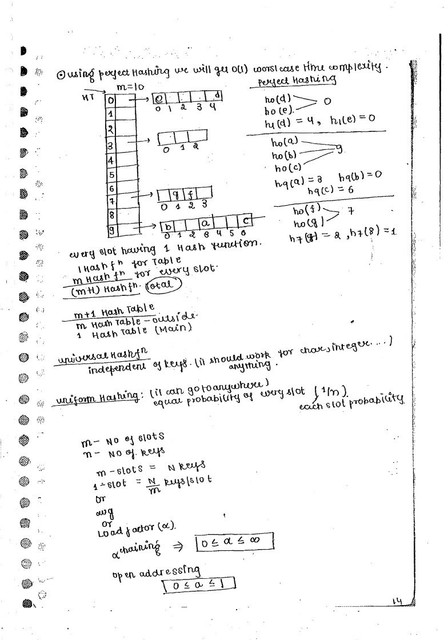 ⊙ using perfect Hashing we will get O(1) worst case time complexity.
perfect Hashing
m=10
HT
0
1
2
3
4
5
6
7
8
9
e d
0 1 2 3 4
0 1 2
g f
0 1 2 3
b a c
0 1 2 3 4 5 6
h0(d)
h0(e)
0
h1(d) = 4, h1(e) = 0
h0(a)
h0(b)
h0(c)
9
h9(a) = 3 h9(b) = 0
h9(c) = 6
h0(f)
h0(g)
7
h7(g) = 2, h7(8) = 1
every slot having 1 Hash function.
1 Hash fn for Table
m Hash fn for every slot.
(m+1) Hash fn. Total
m+1 Hash Table
m Hash Table - outside.
1 Hash Table (Main)
universal Hash fn
independent of keys. (it should work for char, integer.....)
anything.
uniform Hashing: (it can go to anywhere)
equal probability of every slot (1/m)
each slot probability
m - No of slots
n - No. of keys
m - slots = N keys
1 - slot = N/m keys/slot
or
avg
or
Load factor (α).
α chaining ⇒ 0 ≤ α ≤ ∞
open addressing
0 ≤ α ≤ 1
14